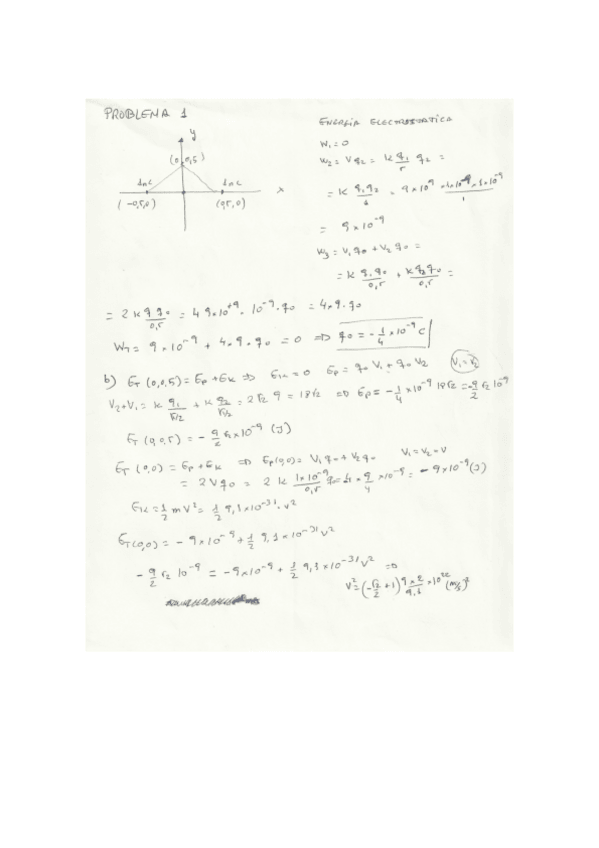 PROBLEMA 1
y
(0,0,5)
1nC
1nC
x
(-0,5,0)
(0,5,0)
ENERGÍA ELECTROSTATICA
W₁=0
W₂ = V q₂ = K q₁/r q₂ =
= K q₁q₂/1 = 9×10⁹ ×1×10⁻⁹×1×10⁻⁹/1
= 9×10⁻⁹
W₃ = V₁q₀ + V₂q₀ =
= K q₁q₀/0,5 + K q₂q₀/0,5 =
= 2K q q₀/0,5 = 4 9×10⁺⁹ · 10⁻⁹ · q₀ = 4×9·q₀
W_T = 9×10⁻⁹ + 4×9×q₀ = 0 ⇒ q₀ = -1/4 ×10⁻⁹ C
b) E_T (0,0,5) = E_P + E_K ⇒ E_K = 0 E_P = q₀ V₁ + q₀ V₂
V₁=V₂
V₂+V₁ = K q₁/√2/2 + K q₂/√2/2 = 2√2 9 = 18√2 ⇒ E_P = -1/4 ×10⁻⁹ 18√2 = -9/2 √2 10⁻⁹
E_T (0,0,5) = -9/2 √2×10⁻⁹ (J)
E_T (0,0) = E_P + E_K ⇒ E_P(0,0) = V₁q₀ + V₂q₀ V₁=V₂=V
= 2Vq₀ = 2K 1×10⁻⁹/0,5 = -9×10⁻⁹ (J)
E_K = 1/2 m V² = 1/2 9,1×10⁻³¹ · v²
E_T(0,0) = -9×10⁻⁹ + 1/2 9,1×10⁻³¹ v²
-9/2 √2 10⁻⁹ = -9×10⁻⁹ + 1/2 9,1×10⁻³¹ v² ⇒
v² = (-√2/2 + 1) 9×2/9,1 ×10²² (m/s)²